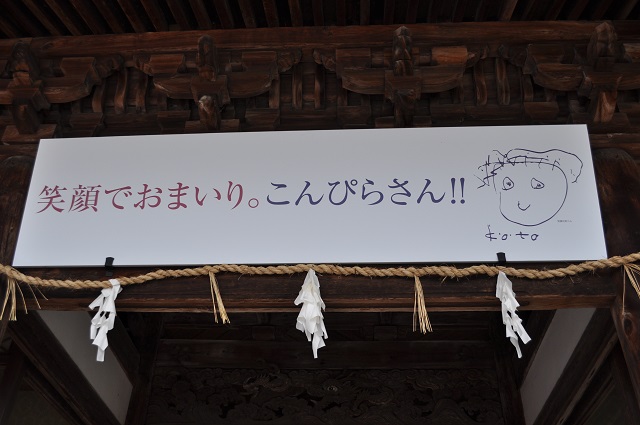 笑顔でおまいり。こんぴらさん!!